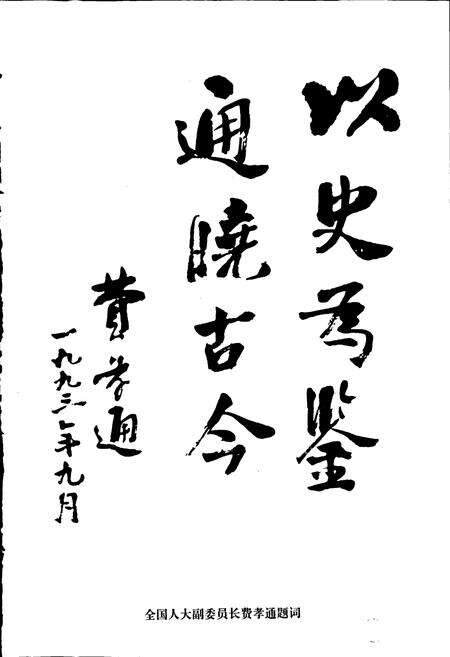 以史为鉴
通曉古今
費孝通
一九九三年九月
全国人大副委员长费孝通题词